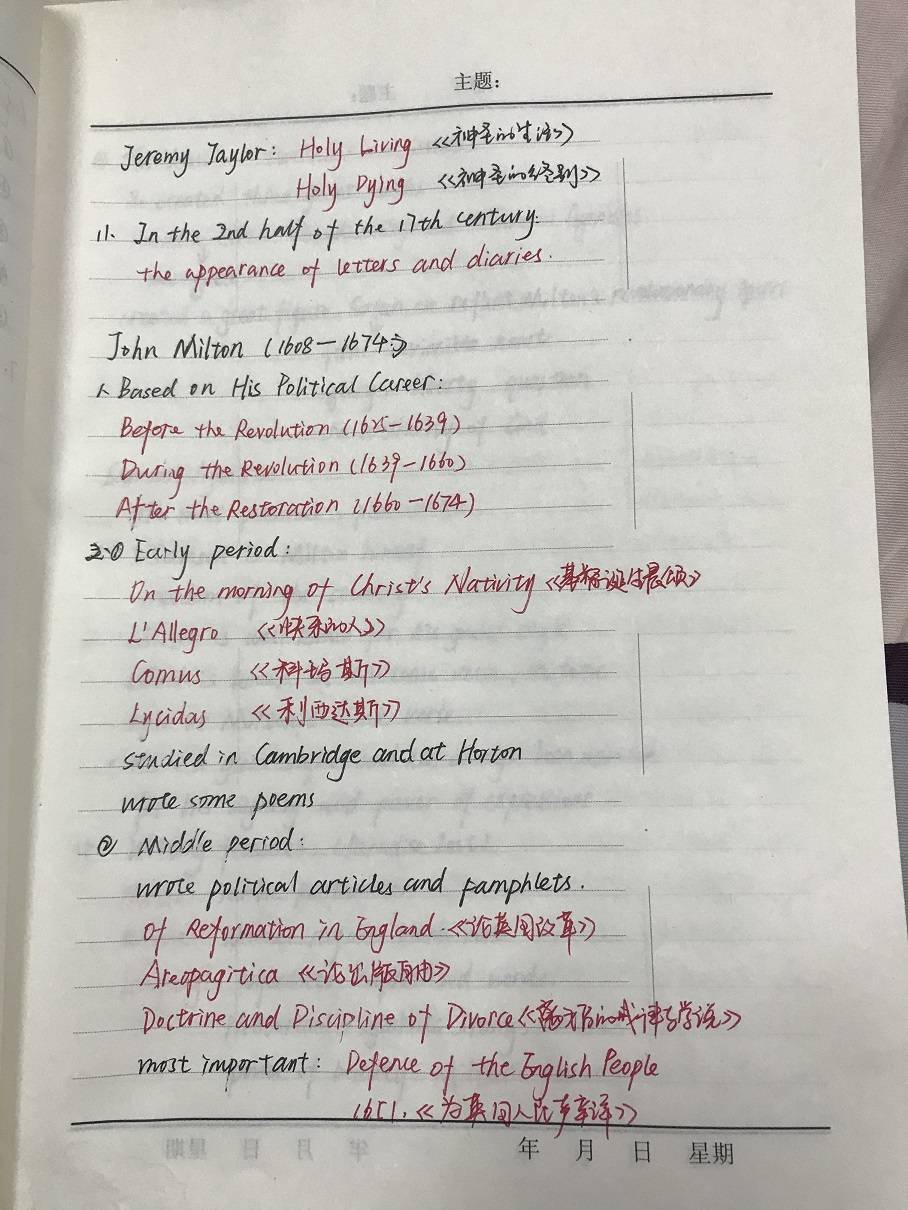 主题:
Jeremy Taylor: Holy Living 《神圣的生活》
Holy Dying 《神圣的终别》
11. In the 2nd half of the 17th century.
the appearance of letters and diaries.
John Milton (1608-1674)
1. Based on His Political Career:
Before the Revolution (1625-1639)
During the Revolution (1639-1660)
After the Restoration (1660-1674)
2.① Early period:
On the morning of Christ's Nativity 《基督诞生晨颂》
L'Allegro 《快乐的人》
Comus 《科玛斯》
Lycidas 《利西达斯》
studied in Cambridge and at Horton
wrote some poems
② Middle period:
wrote political articles and pamphlets.
of Reformation in England. 《论英国改革》
Areopagitica 《论出版自由》
Doctrine and Discipline of Divorce 《离婚的戒律与学说》
most important: Defence of the English People
1651. 《为英国人民声辩》
年 月 日 星期